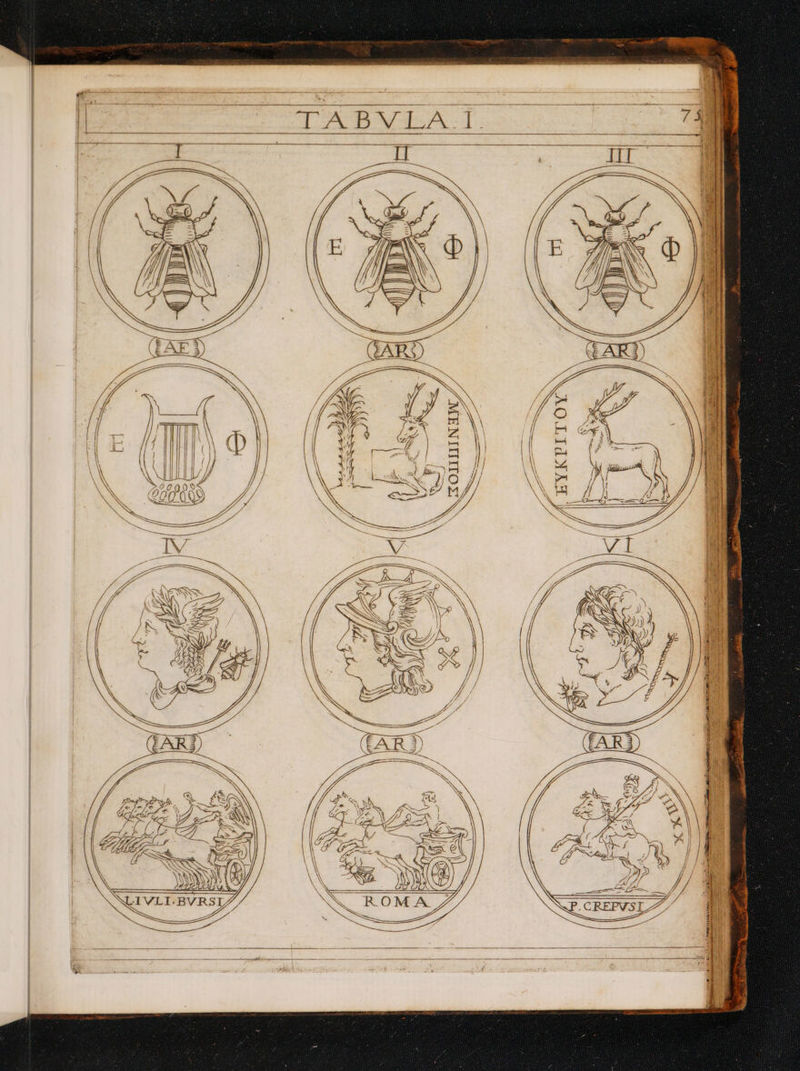 TABVLA. I.
I II III
E Φ E Φ
AE AR AR
E Φ ΜΕΝΙΠΠΟΣ ΕΥΚΡΙΤΟΥ
IV V VI
X K
AR AR AR
XXIIII
L IVLI·BVRSI ROMA P. CREPVSI